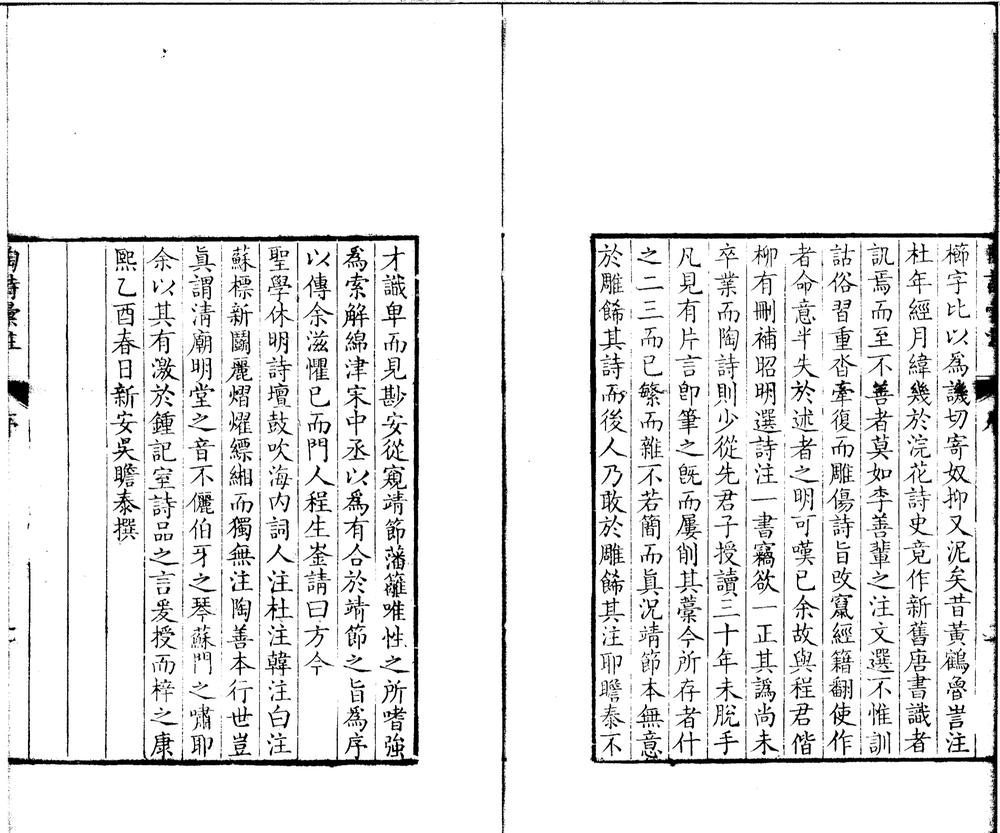 櫛字比以為譏切寄奴抑又泥矣昔黃鶴魯訔注
杜年經月緯幾於浣花詩史竟作新舊唐書識者
訊焉而至不善者莫如李善輩之注文選不惟訓
詁俗習重沓牽復而雕傷詩旨改竄經籍翻使作
者命意半失於述者之明可嘆已余故與程君偕
柳有刪補昭明選詩注一書竊欲一正其譌尚未
卒業而陶詩則少從先君子授讀三十年未脫手
凡見有片言卽筆之旣而屢削其藁今所存者什
之二三而已繁而雜不若簡而眞況靖節本無意
於雕餙其詩而後人乃敢於雕餙其注耶瞻泰不
才識卑而見尠安從窺靖節藩籬唯性之所嗜強
爲索解綿津宋中丞以爲有合於靖節之旨爲序
以傳余滋懼已而門人程生崟請曰方今
聖學休明詩壇鼓吹海內詞人注杜注韓注白注
蘇標新鬭麗熠燿縹緗而獨無注陶善本行世豈
眞謂清廟明堂之音不儷伯牙之琴蘇門之嘯耶
余以其有激於鍾記室詩品之言爰授而梓之康
熙乙酉春日新安吳瞻泰撰
陶詩彙註
序